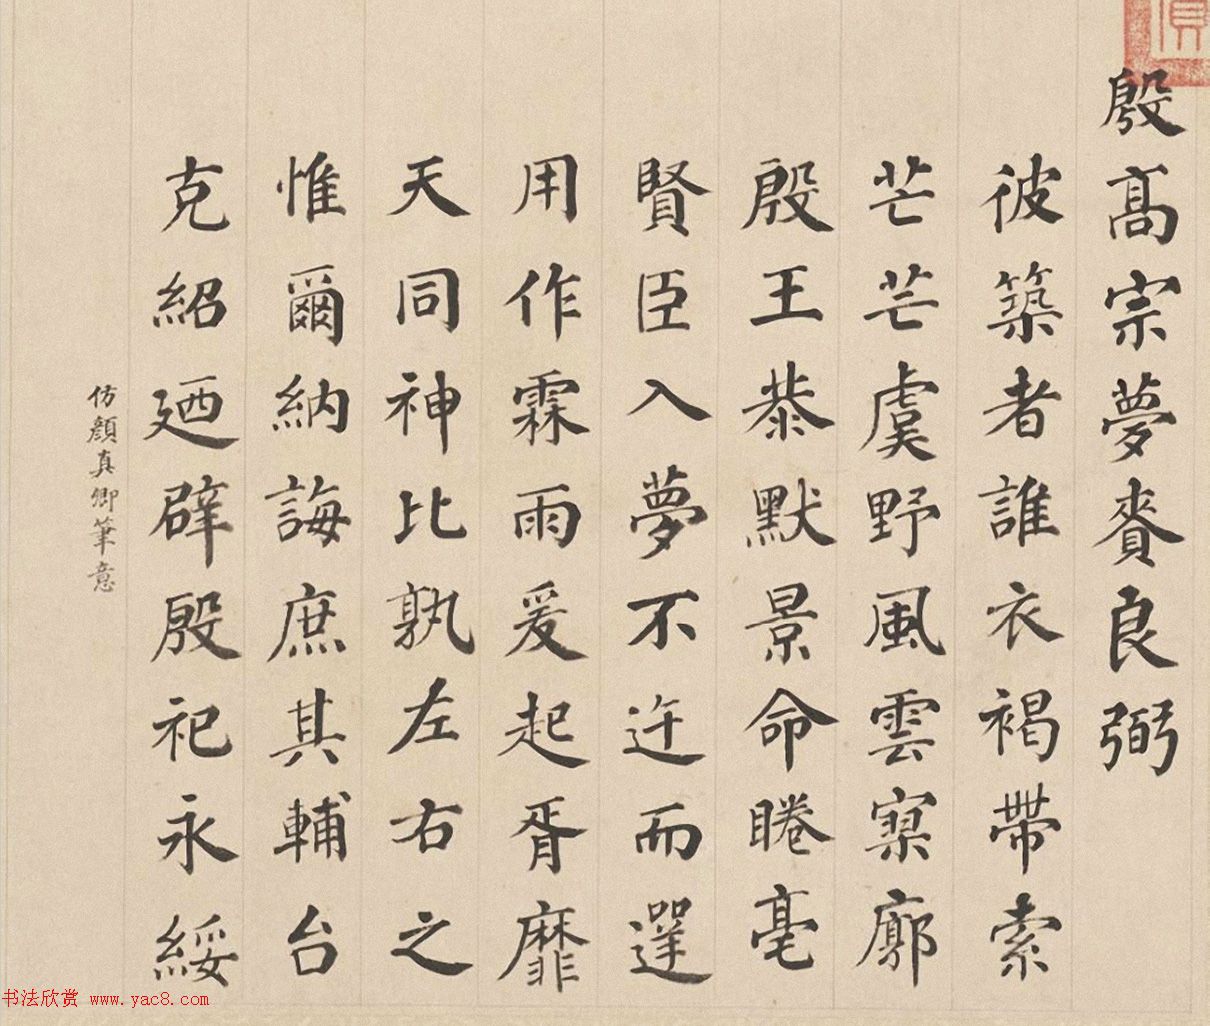 殷髙宗夢賚良弼
彼築者誰衣褐帶索
芒芒虞野風雲寥廓
殷王恭默景命睠亳
賢臣入夢不迕而遌
用作霖雨爰起胥靡
天同神比孰左右之
惟爾納誨庶其輔台
克紹廼辟殷祀永綏
仿顏真卿筆意
书法欣赏 www.yac8.com